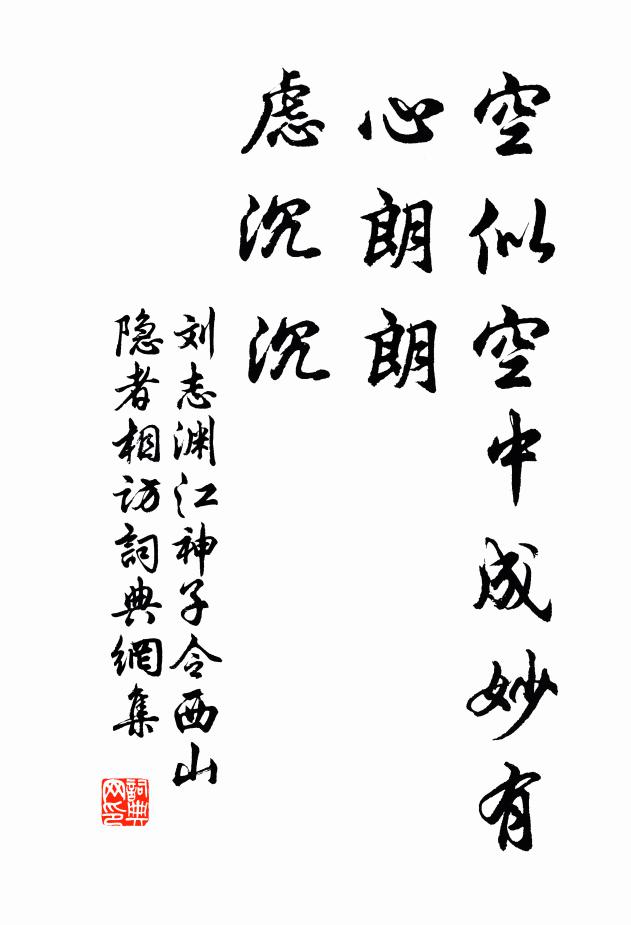 空似空中成妙有
心朗朗
慮沉沉
刘志渊江神子令西山
隐者相访詞典網集
詞典网印